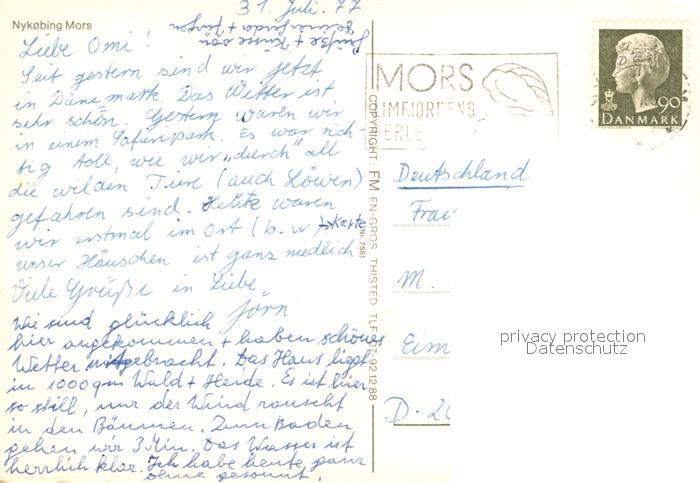 Nykøbing Mors
31. Juli. 77
Liebe Omi!
Seit gestern sind wir jetzt
in Dänemark. Das Wetter ist
sehr schön. Gestern waren wir
in einem Safaripark. Es war rich-
tig toll, wie wir „durch" all
die wilden Tiere (auch Löwen)
gefahren sind. Heute waren
wir erstmal im Ort (b. w. Karte
unser Häuschen ist ganz niedlich
Viele Grüße in Liebe
Jörn
Wir sind glücklich
hier angekommen + haben schönes
Wetter mitgebracht. Das Haus liegt
in 1000qm Wald + Heide. Es ist hier
so still, nur der Wind rauscht
in den Bäumen. Zum Baden
gehen wir 3 Min. Das Wasser ist
herrlich klar. Ich habe heute ganz
ohne gesonnt.
Grüße + Küsse von
COPYRIGHT: FM EN-GROS THISTED TLF 07-92 12 88
Nr. 7581
MORS
LIMFJORDENS
PERLE
90
DANMARK
Deutschland
Frau
M.
Eim
D-20
privacy protection
Datenschutz